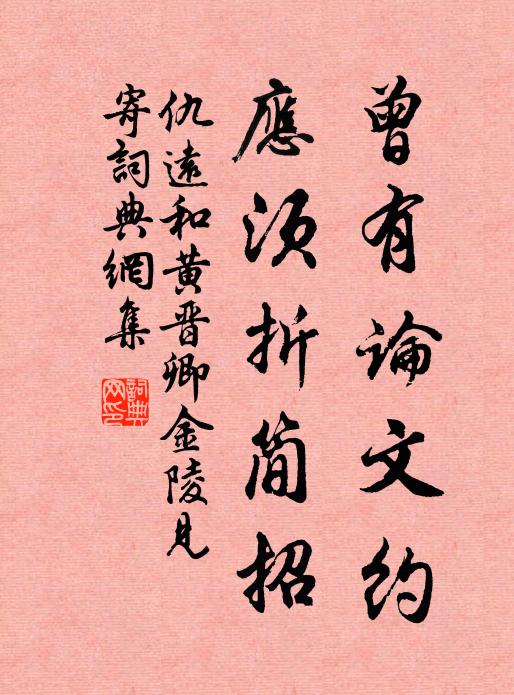 曾有論文約
應須折簡招
仇遠和黃晉卿金陵見
寄詞典網集
詞典網印